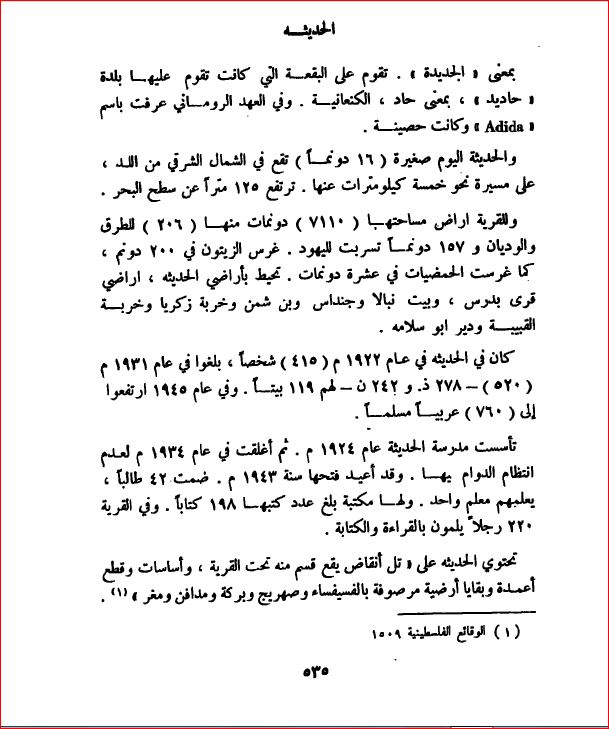 الحديثـــه
بمعنى « الجديدة » . تقوم على البقعة التي كانت تقوم عليهـا بلدة
« حاديد » ، بمعنى حاد ، الكنعانيـة . وفي العهد الرومـاني عرفت باسم
« Adida » وكانت حصينـة .
والحديثة اليوم صغيرة ( ١٦ دونمـاً ) تقع في الشمال الشرقي من اللـد ،
على مسيرة نحو خمسة كيلومترات عنها . ترتفع ١٢٥ متراً عن سطح البحر .
وللقرية اراض مساحتهـا ( ٧١١٠ ) دونمات منهـا ( ٢٠٦ ) للطرق
والوديان و ١٥٧ دونمـاً تسربت لليهود . غرس الزيتون في ٢٠٠ دونم ،
كما غرست الحمضيات في عشرة دونمات . تحيط بأراضي الحديثه ، اراضي
قرى بدرس ، وبيت نبالا وجنداس وبن شمن وخربة زكريا وخربـة
القبيبـة ودير ابو سلامه .
كان في الحديثه في عـام ١٩٢٢ م ( ٤١٥ ) شخصاً ، بلغوا في عام ١٩٣١ م
( ٥٢٠ ) – ٢٧٨ ذ. و ٢٤٢ ن – لهم ١١٩ بيتـاً . وفي عام ١٩٤٥ ارتفعوا
إلى ( ٧٦٠ ) عربيـاً مسلمـاً .
تأسست مدرسة الحديثة عام ١٩٢٤ م . ثم أغلقت في عام ١٩٣٤ م لعـدم
انتظام الدوام بهـا . وقد أعيـد فتحها سنة ١٩٤٣ م . ضمت ٤٢ طالباً ،
يعلمهم معلم واحد . ولهـا مكتبة بلغ عدد كتبهـا ١٩٨ كتاباً . وفي القرية
٢٢٠ رجلاً يلمون بالقراءة والكتابة .
تحتوي الحديثه على « تل أنقاض يقع قسم منه تحت القرية ، وأساسات وقطع
أعمدة وبقايا أرضية مرصوفة بالفسيفساء وصهريج وبركة ومدافن ومغر » (١) .
( ١ ) الوقائع الفلسطينية ١٥٠٩
٥٣٥